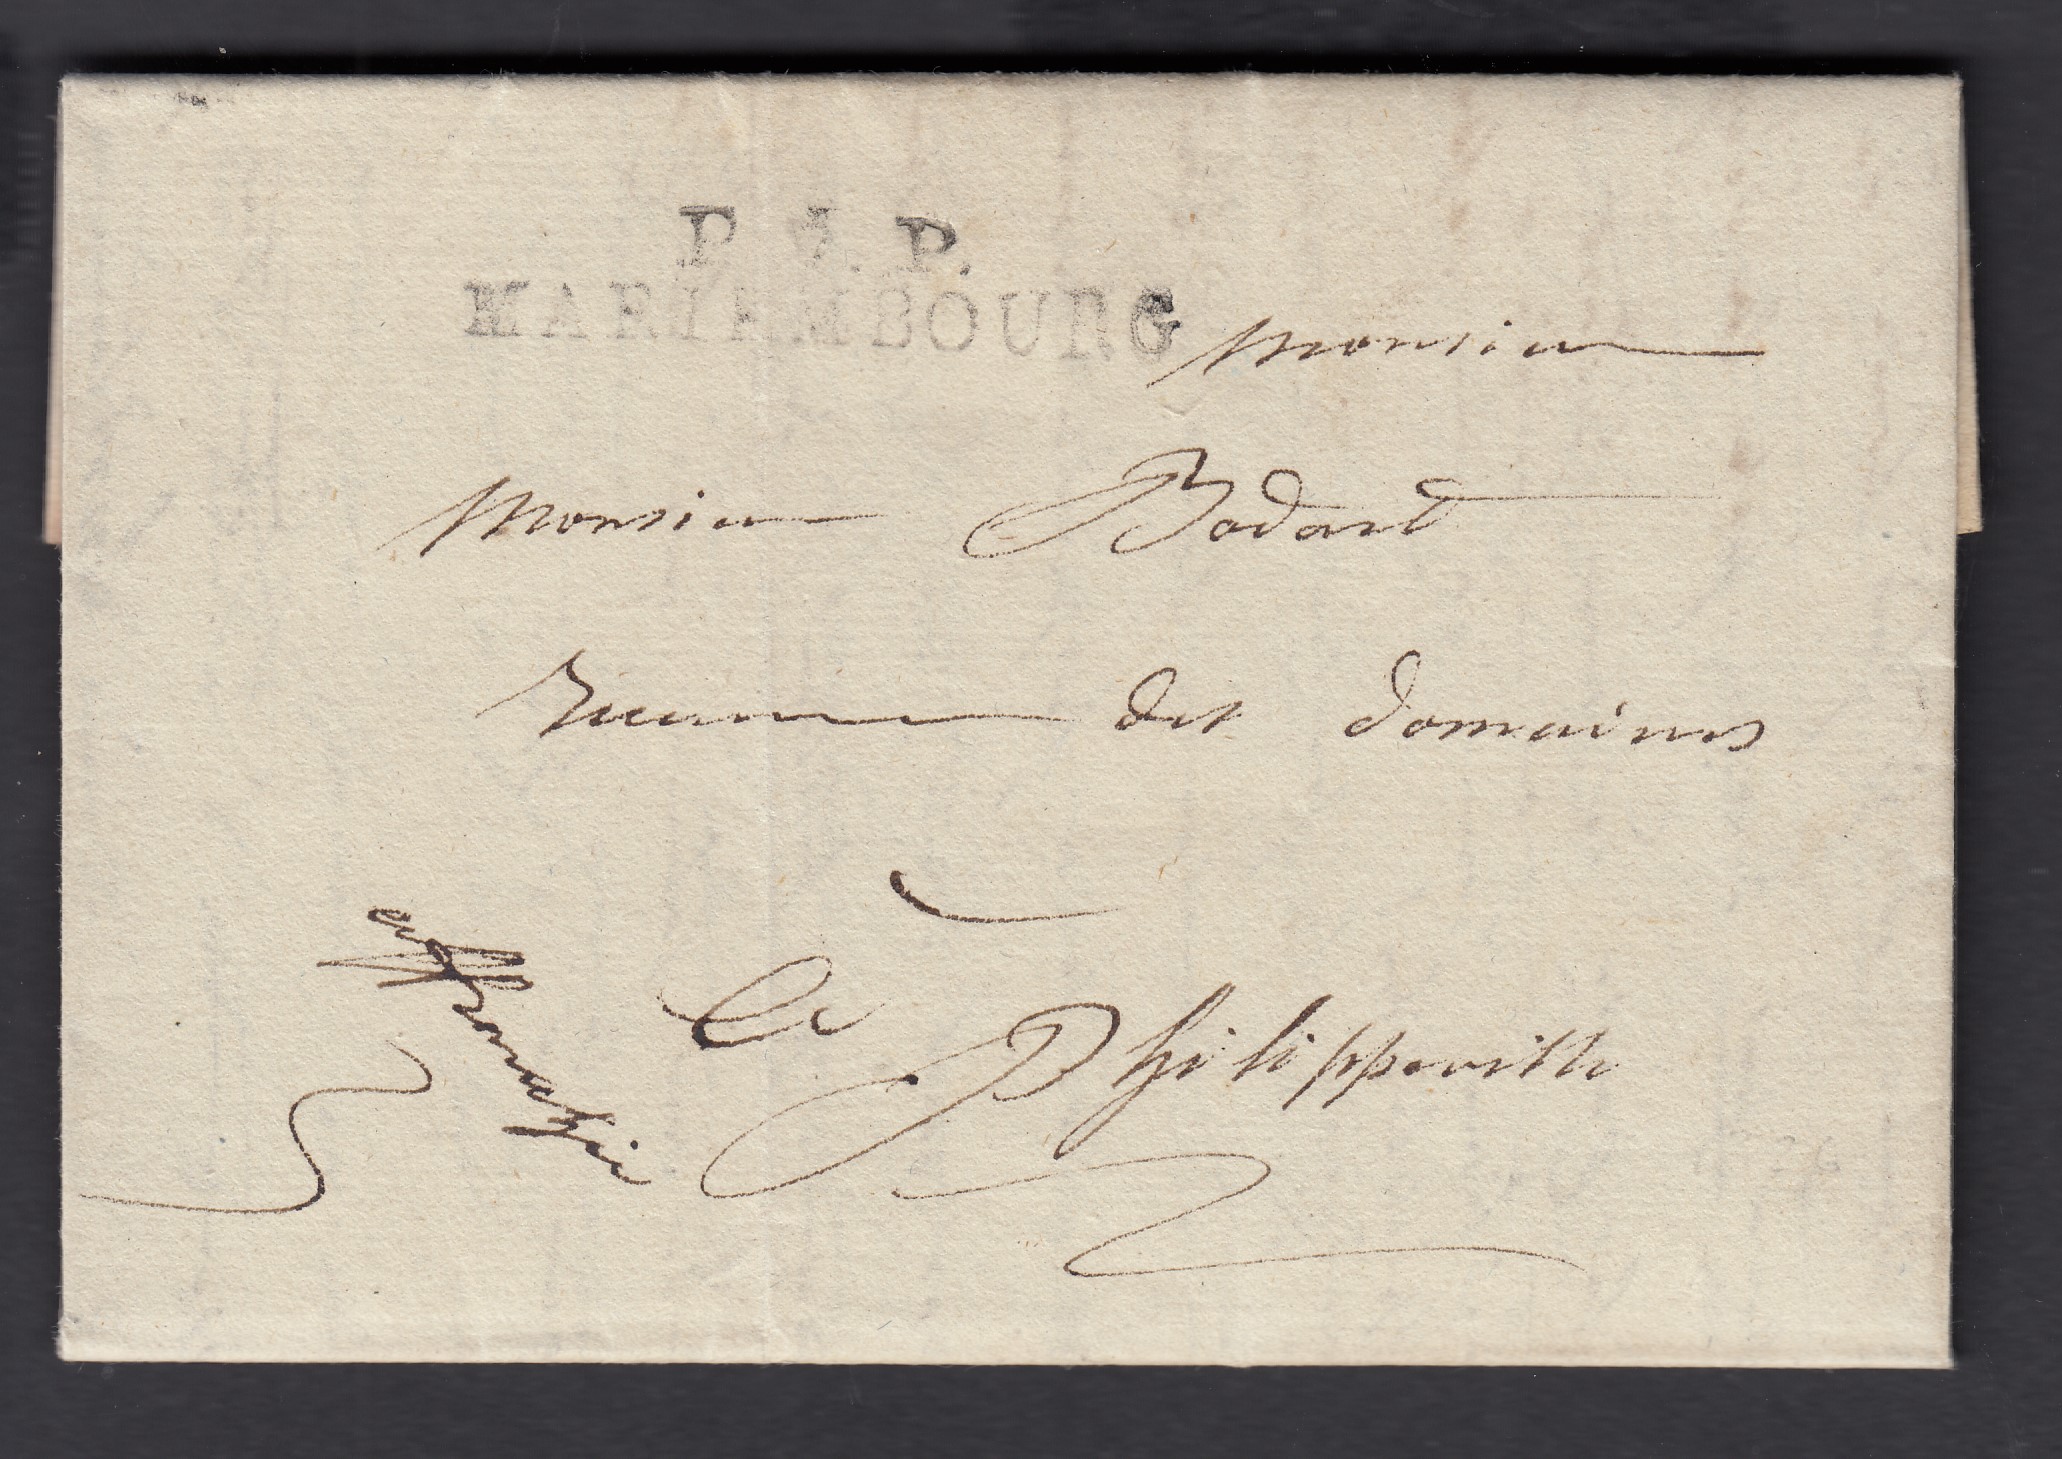 P. 1. P.
MARIEMBOURG
Monsieur
Monsieur Bodart
Receveur des domaines
a Philippeville
affranchie